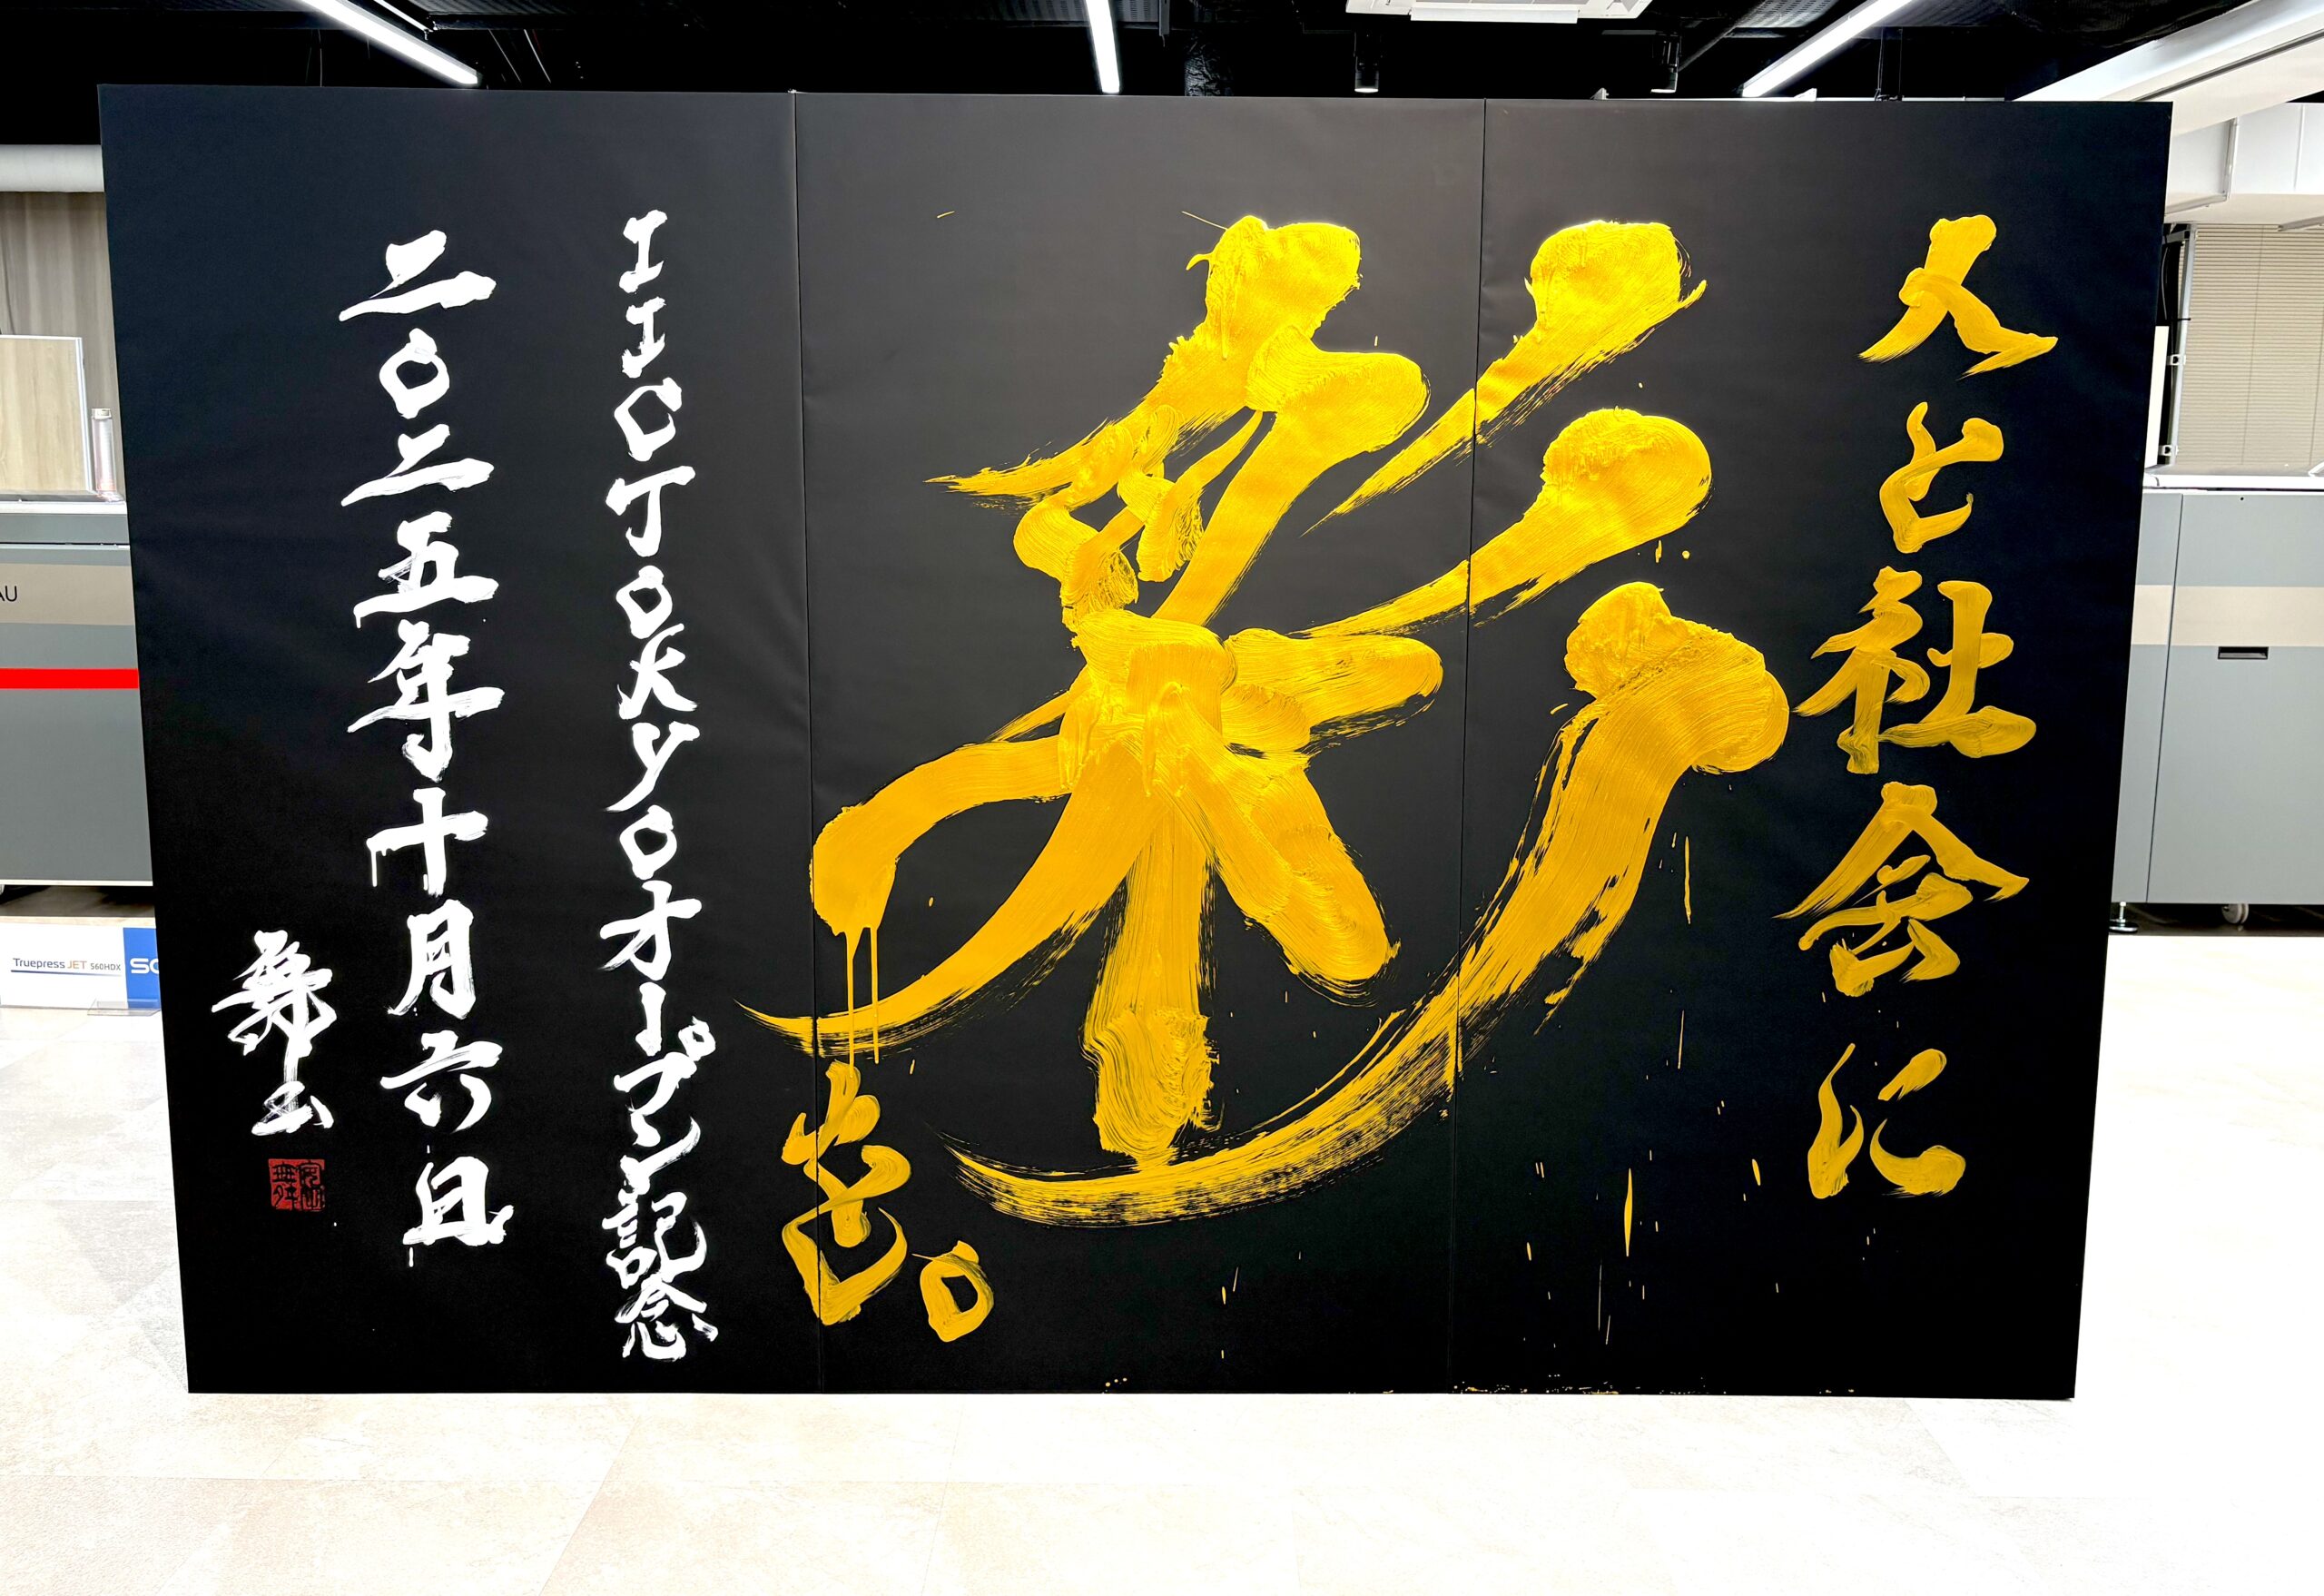 人と社会に
彩を。
IJCTOKYOオープン記念
二〇二五年十月六日
Truepress JET S60HDX